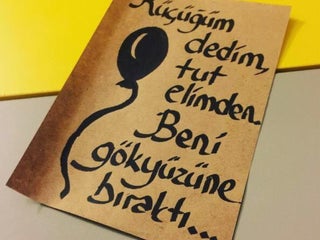 Küçüğüm
dedim,
tut
elimden.
Beni
gökyüzüne
bıraktı...